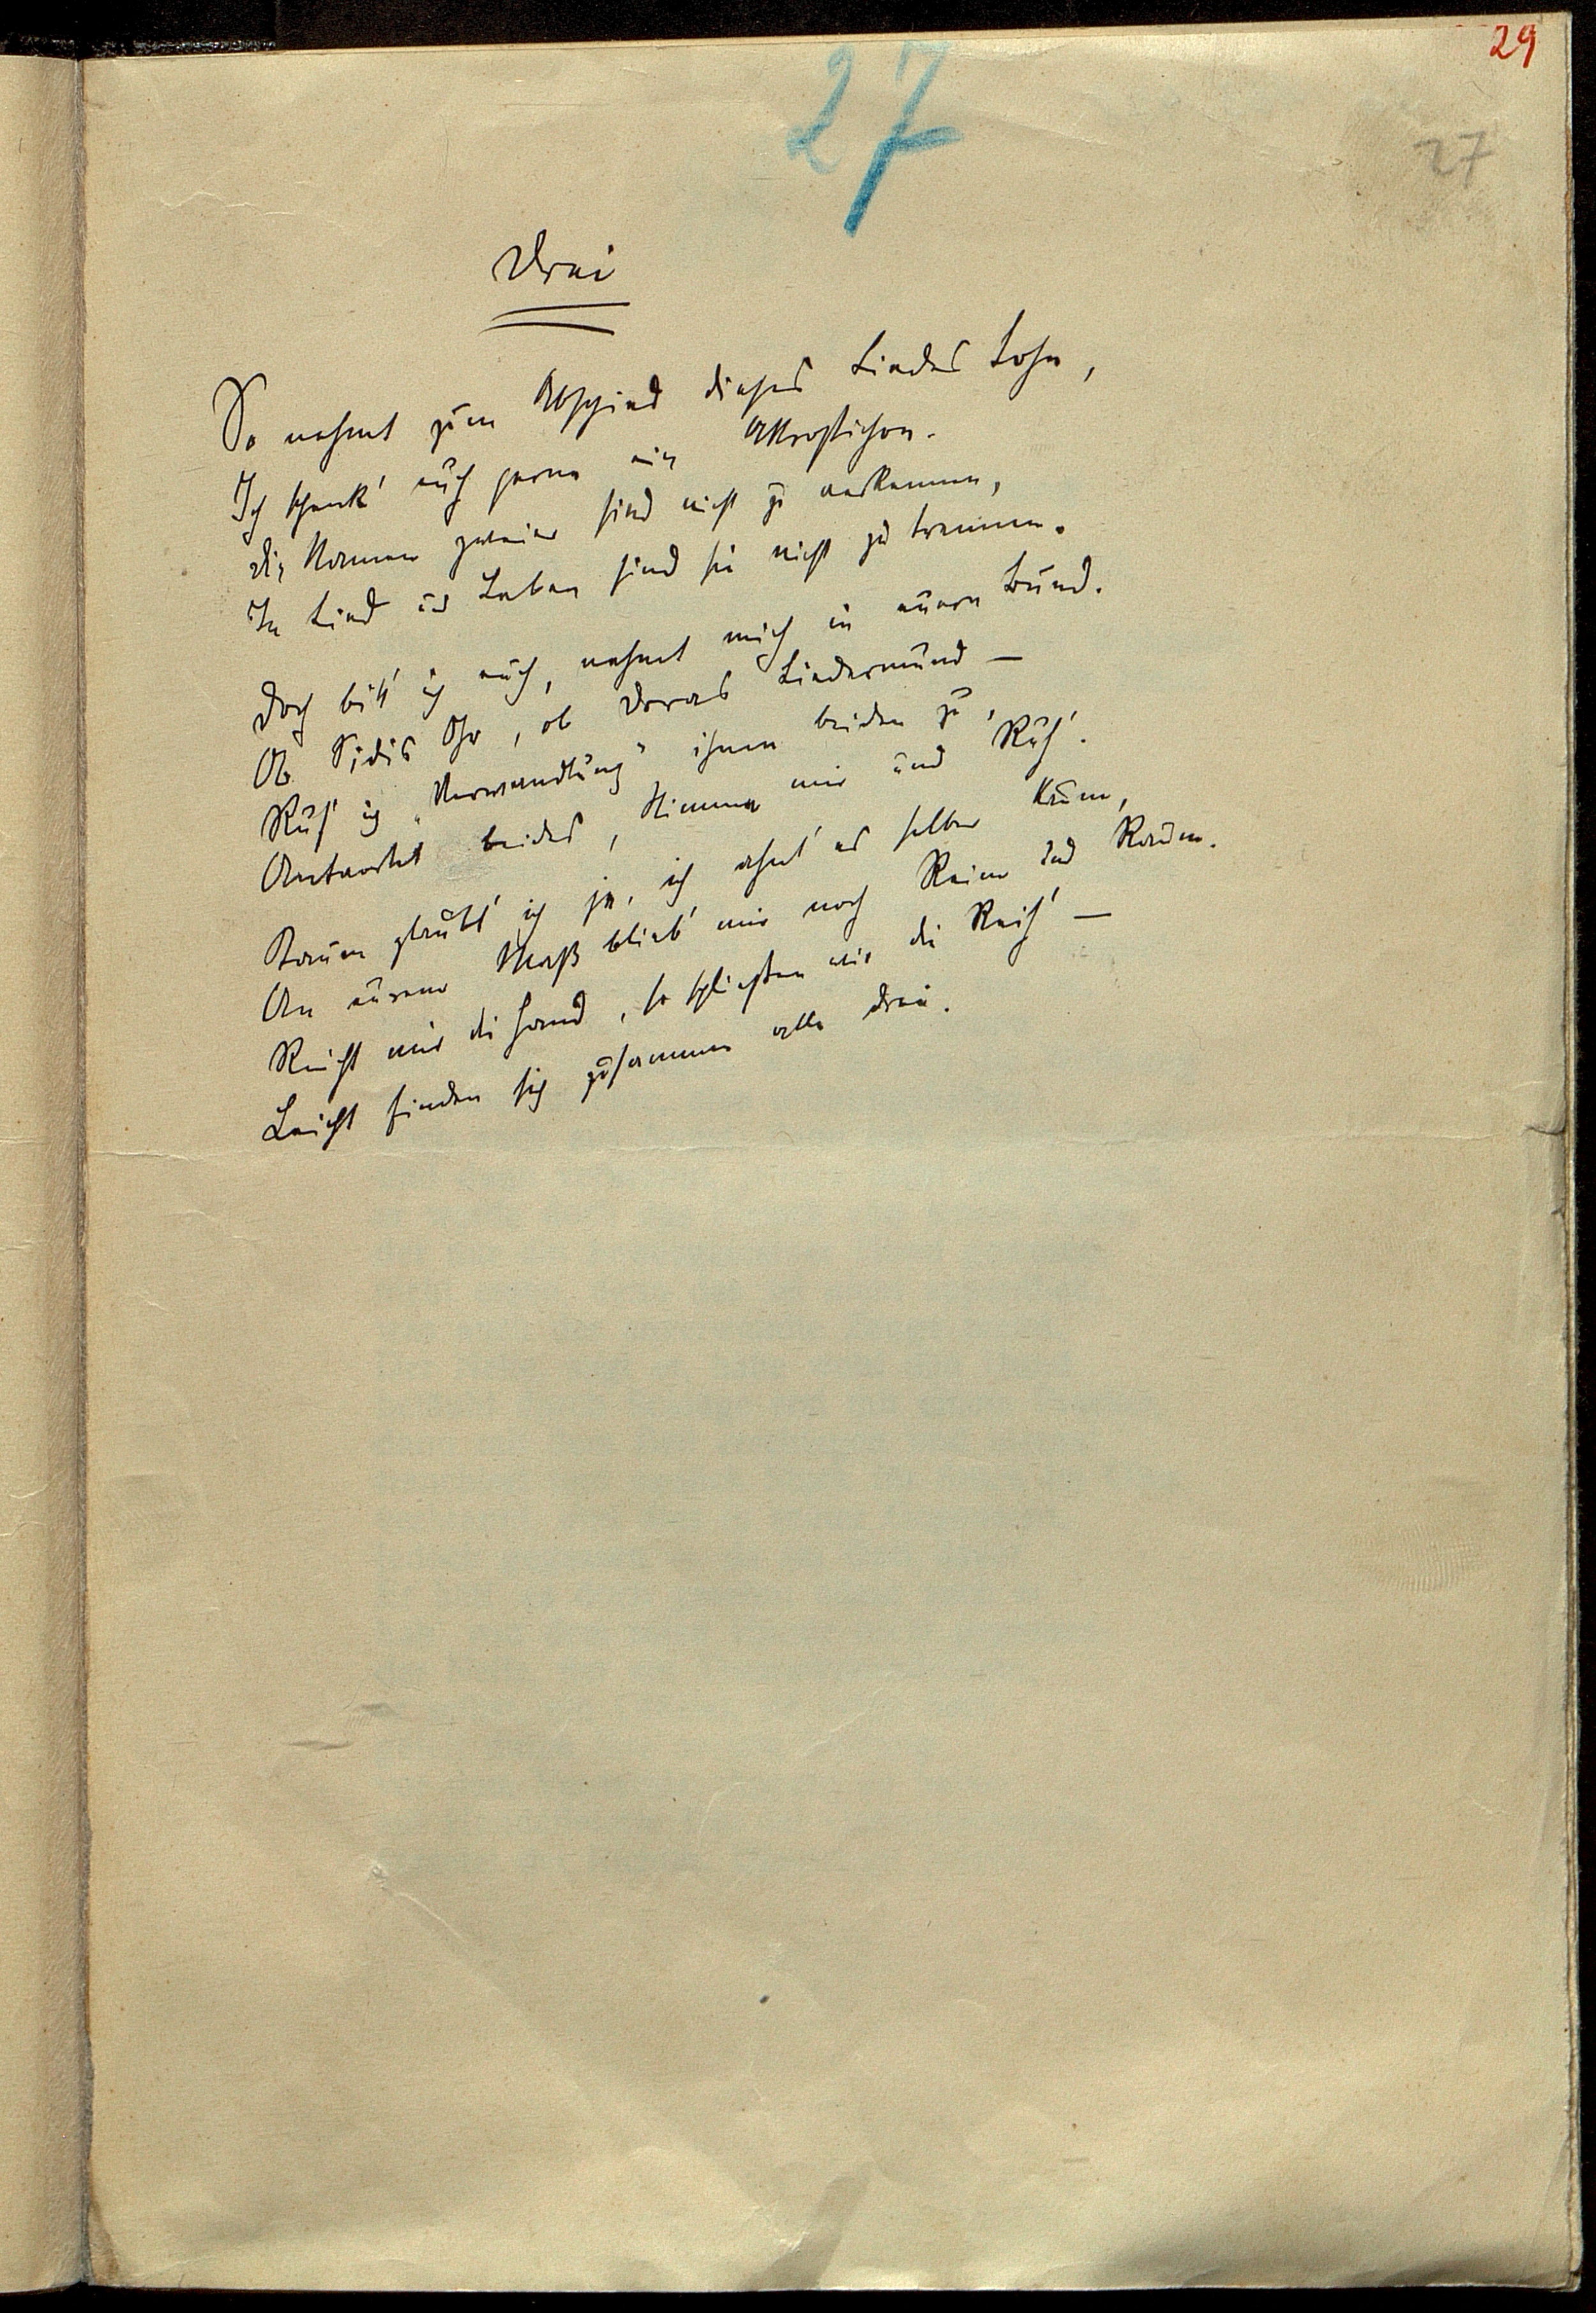 29
27
27
Drei
So nehmt zum Abschied dieses Liedes Lohn,
Ich schenk' euch gerne ein Akrostichon.
Die Namen zweier sind nicht zu verkennen,
In Lied u Leben sind sie nicht zu trennen.
Doch bitt' ich euch, nehmt mich in euern Bund.
Ob Sidis Ohr, ob Doras Liedermund —
Ruf' ich „Verwandlung“ ihnen beiden zu,
Antwortet beides, Stimme mir und Ruh'.
Kaum glaubt' ich ja, ich ahnt' es selber kaum,
An eurem Maß blieb' mir noch Reim und Raum.
Reicht mir die Hand, so schließen wir die Reih' —
Leicht finden sich zusammen alle drei.